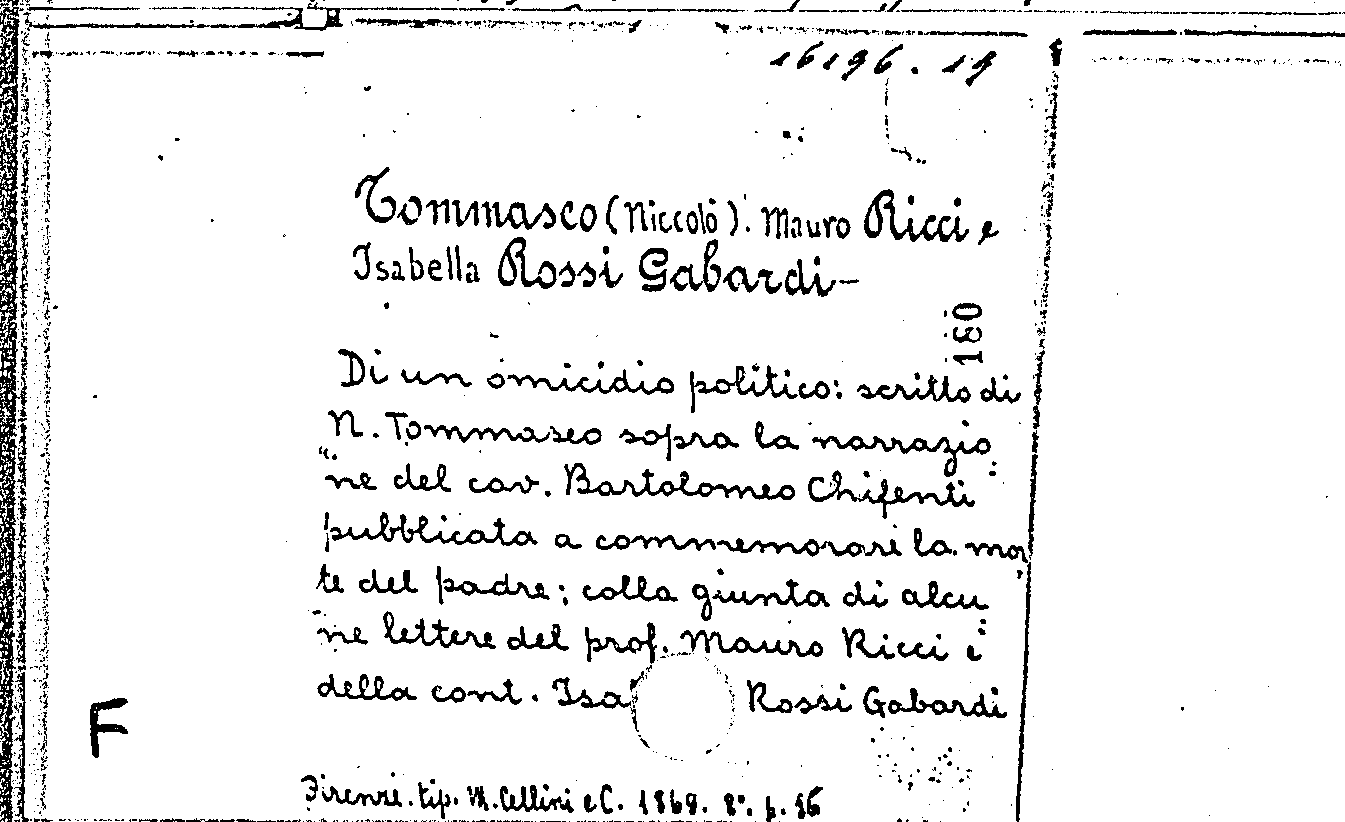 16196.19
Tommasco (Niccolò). Mauro Ricci e
Isabella Rossi Gabardi—
160
Di un omicidio politico: scritto di
N. Tommaseo sopra la narrazio
ne del cav. Bartolomeo Chifenti
pubblicata a commemorare la mor
te del padre; colla giunta di alcu
ne lettere del prof. Mauro Ricci e
della cont. Isa Rossi Gabardi
F
Firenze. tip. M. Cellini e C. 1869. 8°. p.